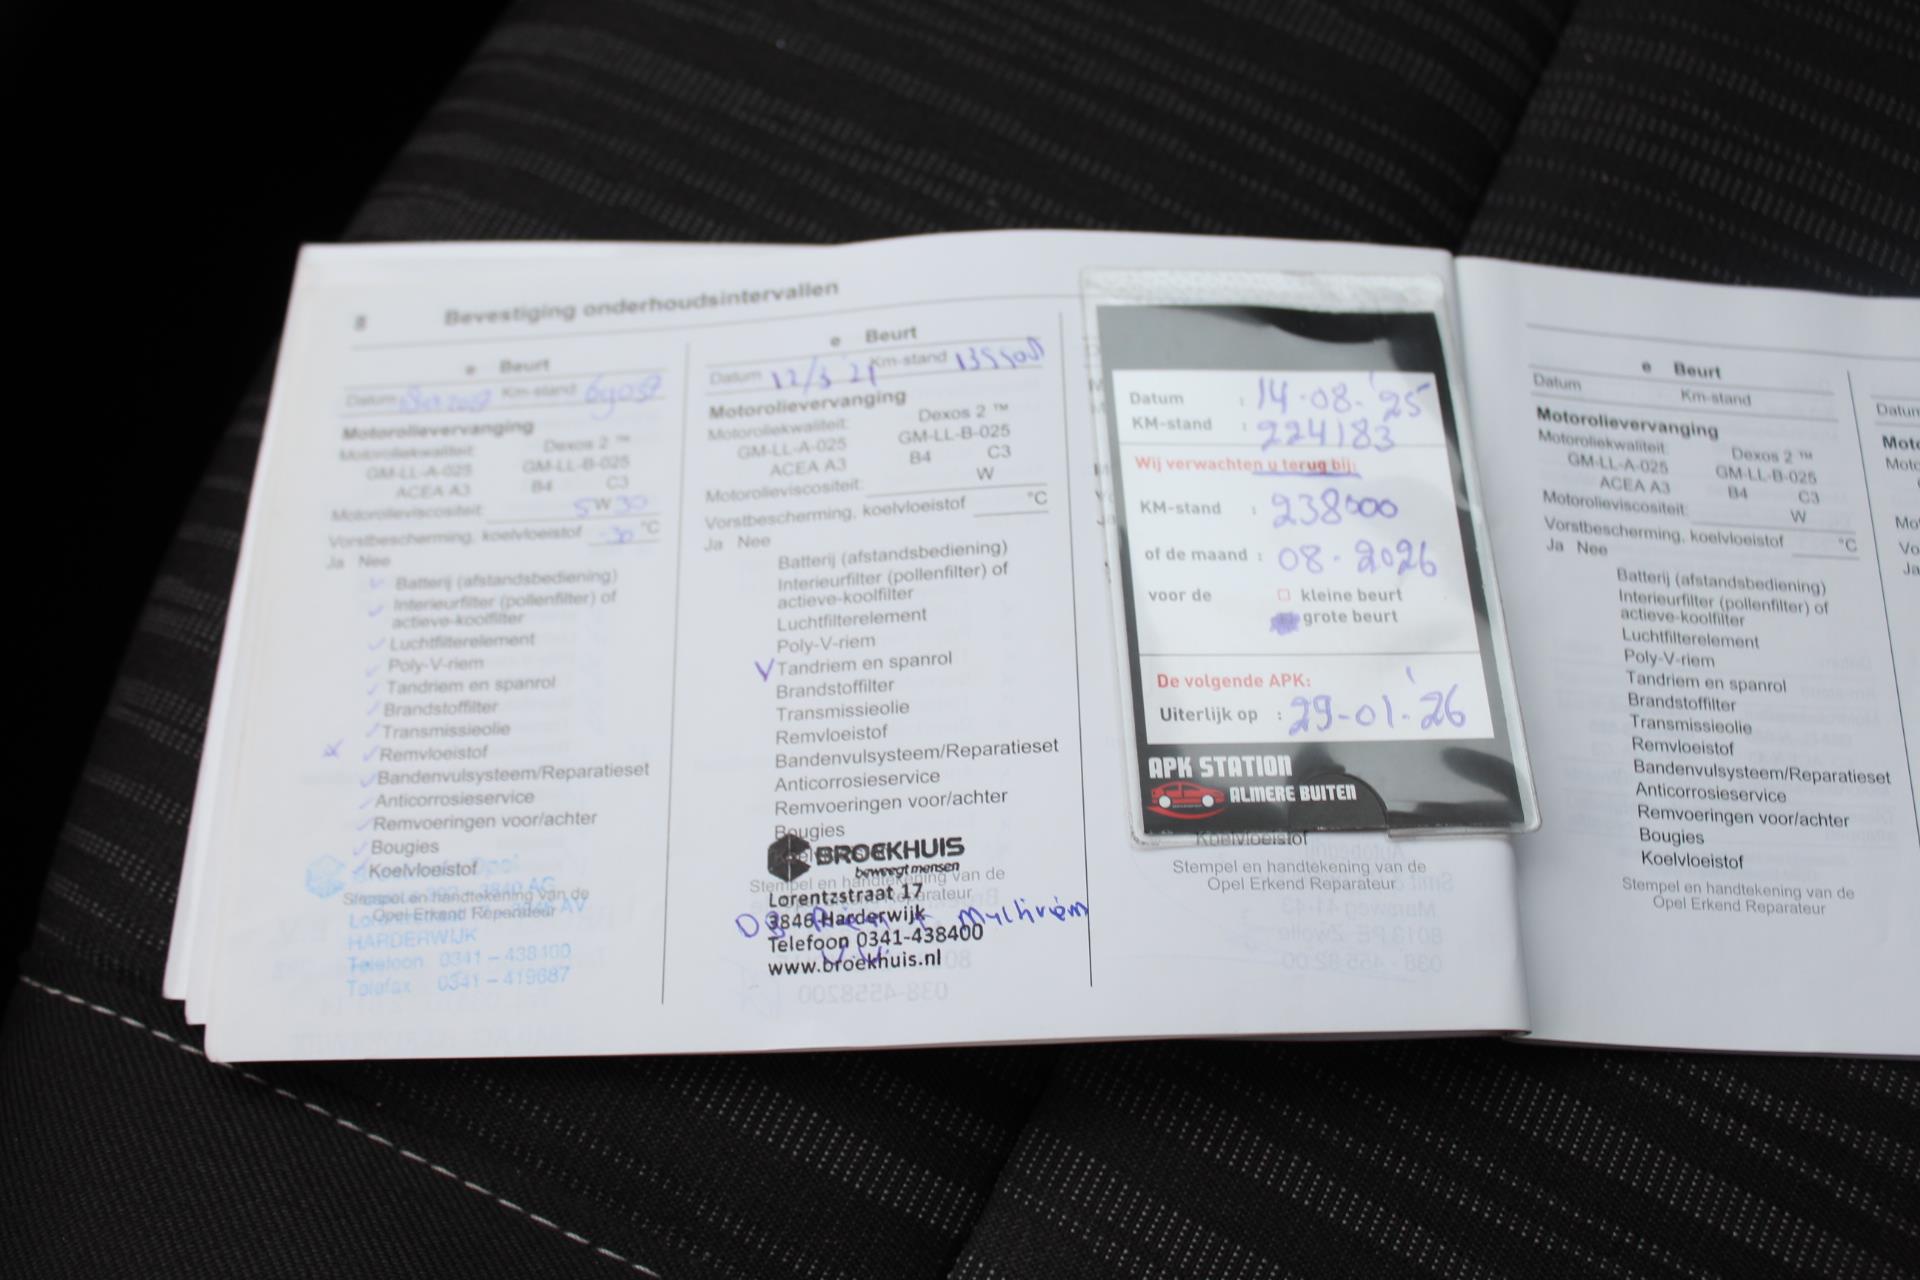 8 Bevestiging onderhoudsintervallen
e Beurt
Datum Km-stand 69057
Motorolievervanging
Motoroliekwaliteit: Dexos 2 ™
GM-LL-A-025 GM-LL-B-025
ACEA A3 B4 C3
Motorolieviscositeit: 5 W 30
Vorstbescherming, koelvloeistof -30 °C
Ja Nee
Batterij (afstandsbediening)
Interieurfilter (pollenfilter) of
actieve-koolfilter
Luchtfilterelement
Poly-V-riem
Tandriem en spanrol
Brandstoffilter
Transmissieolie
Remvloeistof
Bandenvulsysteem/Reparatieset
Anticorrosieservice
Remvoeringen voor/achter
Bougies
Koelvloeistof
Stempel en handtekening van de
Opel Erkend Reparateur
HARDERWIJK
Telefoon 0341 – 438400
Telefax 0341 – 419687
e Beurt
Datum 12/3 21 Km-stand
Motorolievervanging
Motoroliekwaliteit: Dexos 2 ™
GM-LL-A-025 GM-LL-B-025
ACEA A3 B4 C3
Motorolieviscositeit: W
Vorstbescherming, koelvloeistof °C
Ja Nee
Batterij (afstandsbediening)
Interieurfilter (pollenfilter) of
actieve-koolfilter
Luchtfilterelement
Poly-V-riem
V Tandriem en spanrol
Brandstoffilter
Transmissieolie
Remvloeistof
Bandenvulsysteem/Reparatieset
Anticorrosieservice
Remvoeringen voor/achter
Bougies
BROEKHUIS
beweegt mensen
Stempel en handtekening van de
Lorentzstraat 17
3846 Harderwijk
Telefoon 0341-438400
www.broekhuis.nl
Datum : 14-08-'25
KM-stand : 224183
Wij verwachten u terug bij:
KM-stand : 238000
of de maand : 08-2026
voor de kleine beurt
grote beurt
De volgende APK:
Uiterlijk op : 29-01-'26
APK STATION
ALMERE BUITEN
Koelvloeistof
Stempel en handtekening van de
Opel Erkend Reparateur
e Beurt
Datum Km-stand
Motorolievervanging
Motoroliekwaliteit: Dexos 2 ™
GM-LL-A-025 GM-LL-B-025
ACEA A3 B4 C3
Motorolieviscositeit: W
Vorstbescherming, koelvloeistof °C
Ja Nee
Batterij (afstandsbediening)
Interieurfilter (pollenfilter) of
actieve-koolfilter
Luchtfilterelement
Poly-V-riem
Tandriem en spanrol
Brandstoffilter
Transmissieolie
Remvloeistof
Bandenvulsysteem/Reparatieset
Anticorrosieservice
Remvoeringen voor/achter
Bougies
Koelvloeistof
Stempel en handtekening van de
Opel Erkend Reparateur
Datum